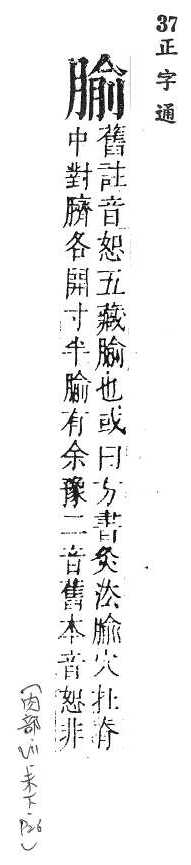 37正字通
腧
舊註音恕五藏腧也或曰方書灸法腧穴在脊
中對臍各開寸半腧有余豫二音舊本音恕非
(肉部・未下・P26)